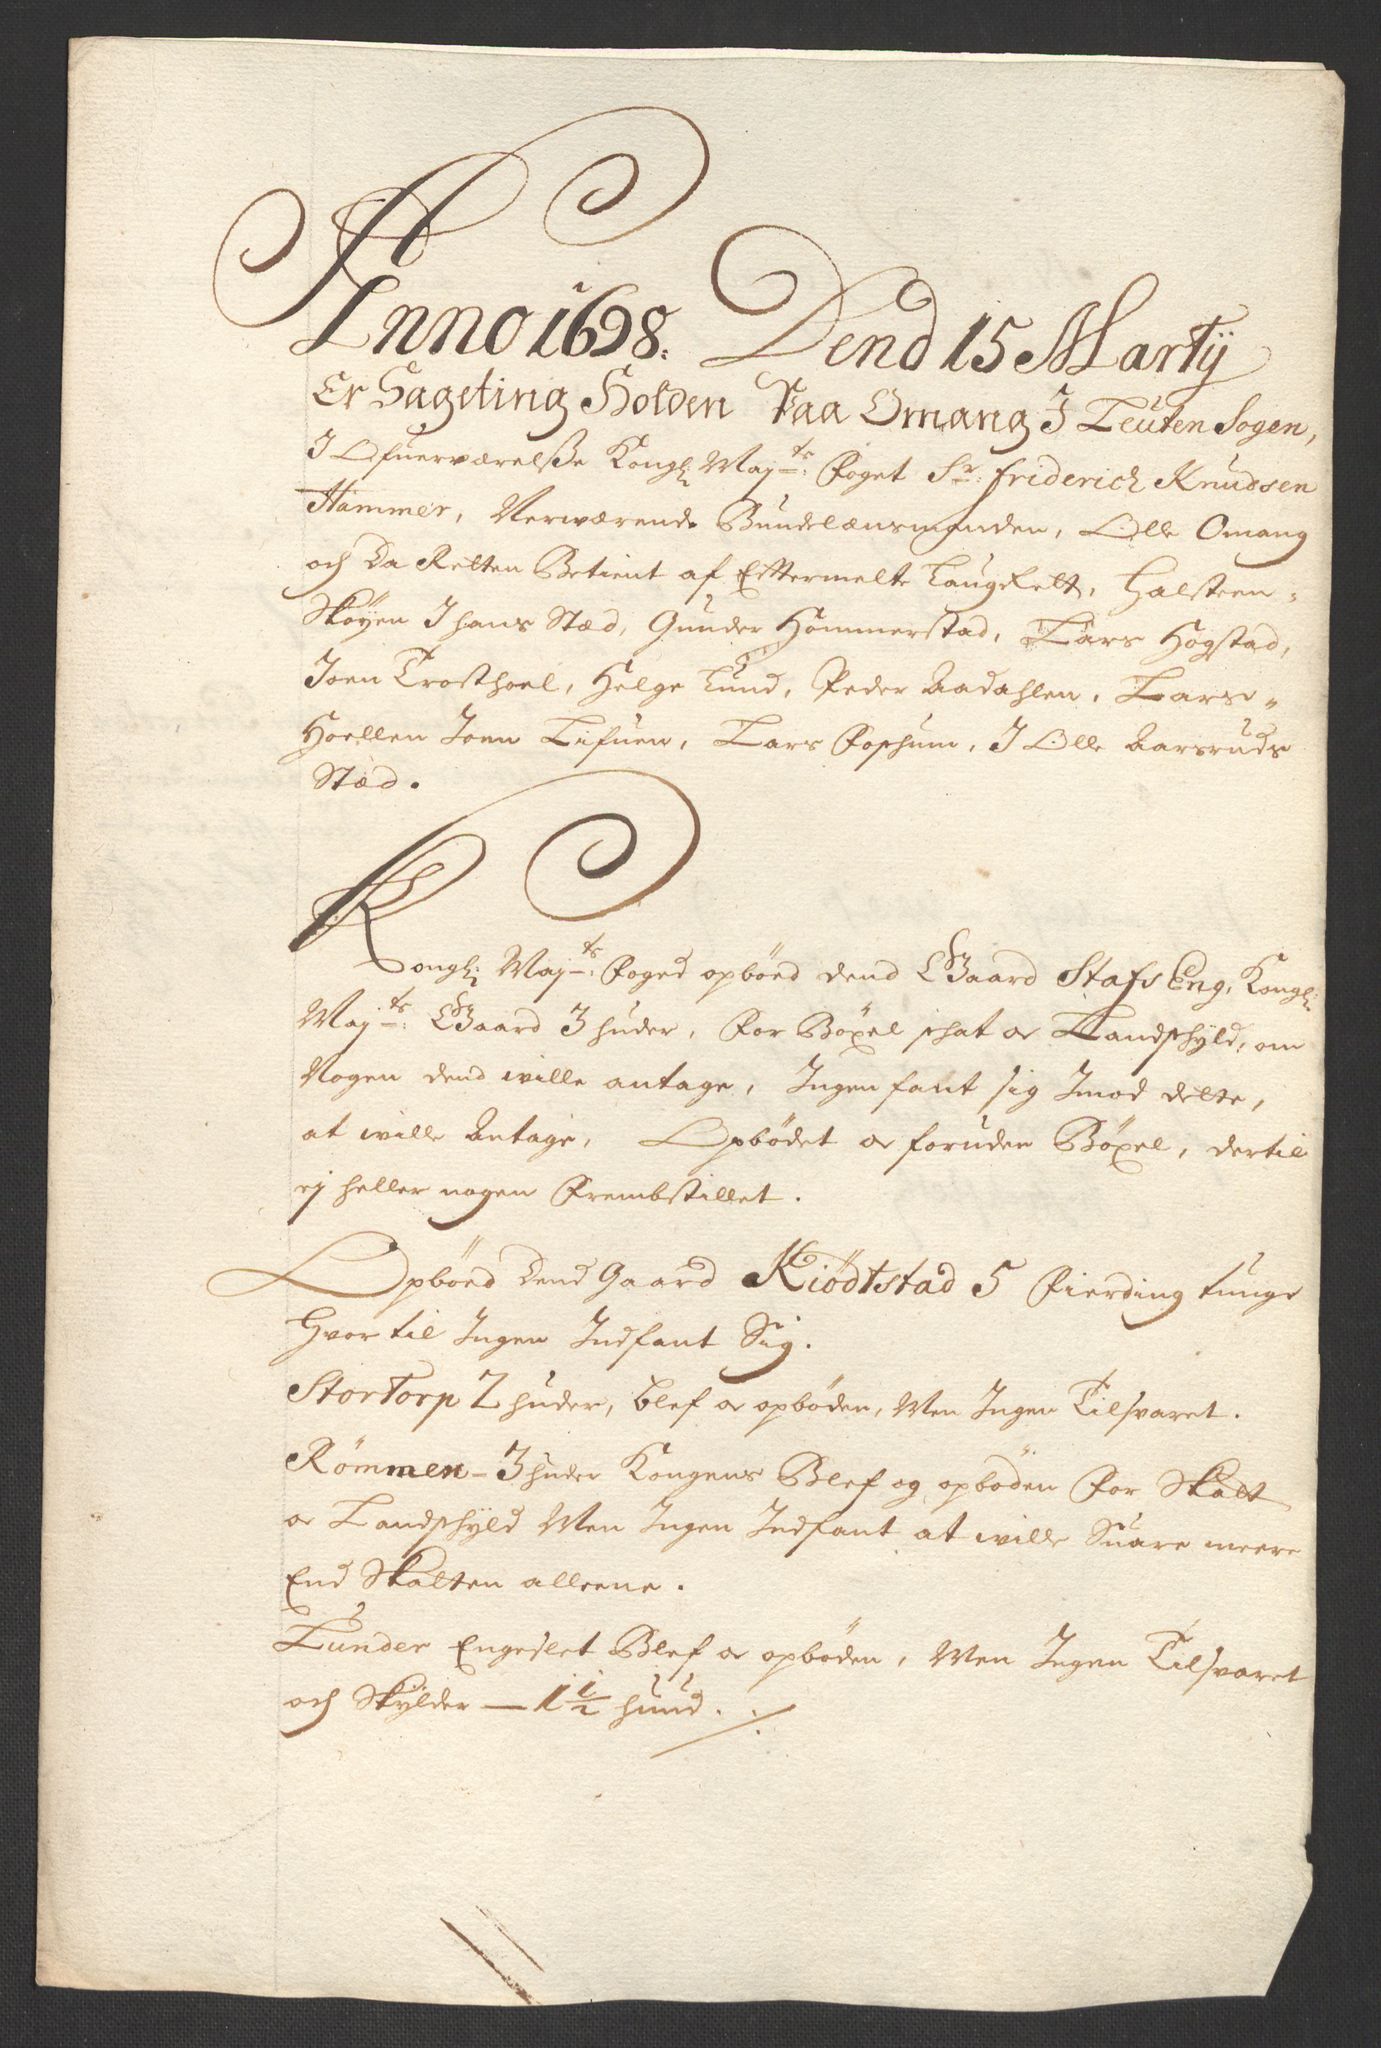 Anno 1698. Dend 15 Martij
Er Sageting Holden Paa Omang J Leuten Sogen,
J Ofuerwærelsse Kongl: Maj:ts Foget Sr: Friderich Knudsen
Hammer, Nerwærende Bundelænsmanden, Olle Omang
och Da Retten Betient af Eftermelte Laugrett, Halsteen
Skøyen J hans Stæd, Gunder Hommerstad, Lars Hogstad,
Joen Trosthoel, Helge Lund, Peder Aadahlen, Lars
Hoellen Joen Lifuen, Lars Fosshum, J Olle Aarsruds
Stæd.
Kongl: Maj:ts Foged opböed dend Gaard Stafs Eng, Kongl:
Maj:ts: Gaard 3 huder, For Böxel schat oc Landschyld, om
Nogen dend wille antage, Jngen fant sig Jmod dette,
at wille Antage, Opbödet oc foruden Böxel, dertil
ej heller nogen Frembstillet.
Opböed dend Gaard Kiödtstad 5 Fierding tunge
Hvor til Jngen Jndfant Sig.
StorTorp 2 huder, blef oc opböden, Men Jngen Tilsvaret.
Römmen - 3 huder Kongens Blef og opböden For Skatt
oc Landschyld Men Jngen Jndfant at wille Suare meere
End Skatten alleene.
Lunder Engeslet Blef oc opböden, Men Jngen Tilsvaret
och Skylder — 1 1/2 hund.